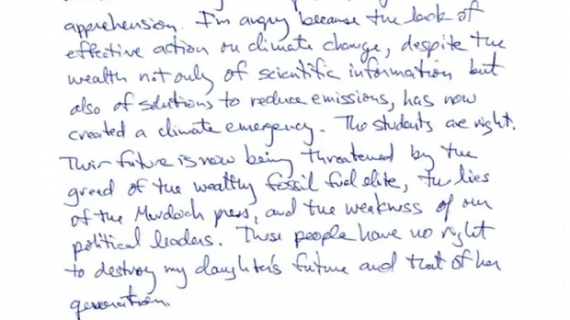 apprehension. I'm angry because the lack of
effective action on climate change, despite the
wealth not only of scientific information but
also of solutions to reduce emissions, has now
created a climate emergency. The students are right.
Their future is now being threatened by the
greed of the wealthy fossil fuel elite, the lies
of the Murdoch press, and the weakness of our
political leaders. These people have no right
to destroy my daughter's future and that of her
generation.